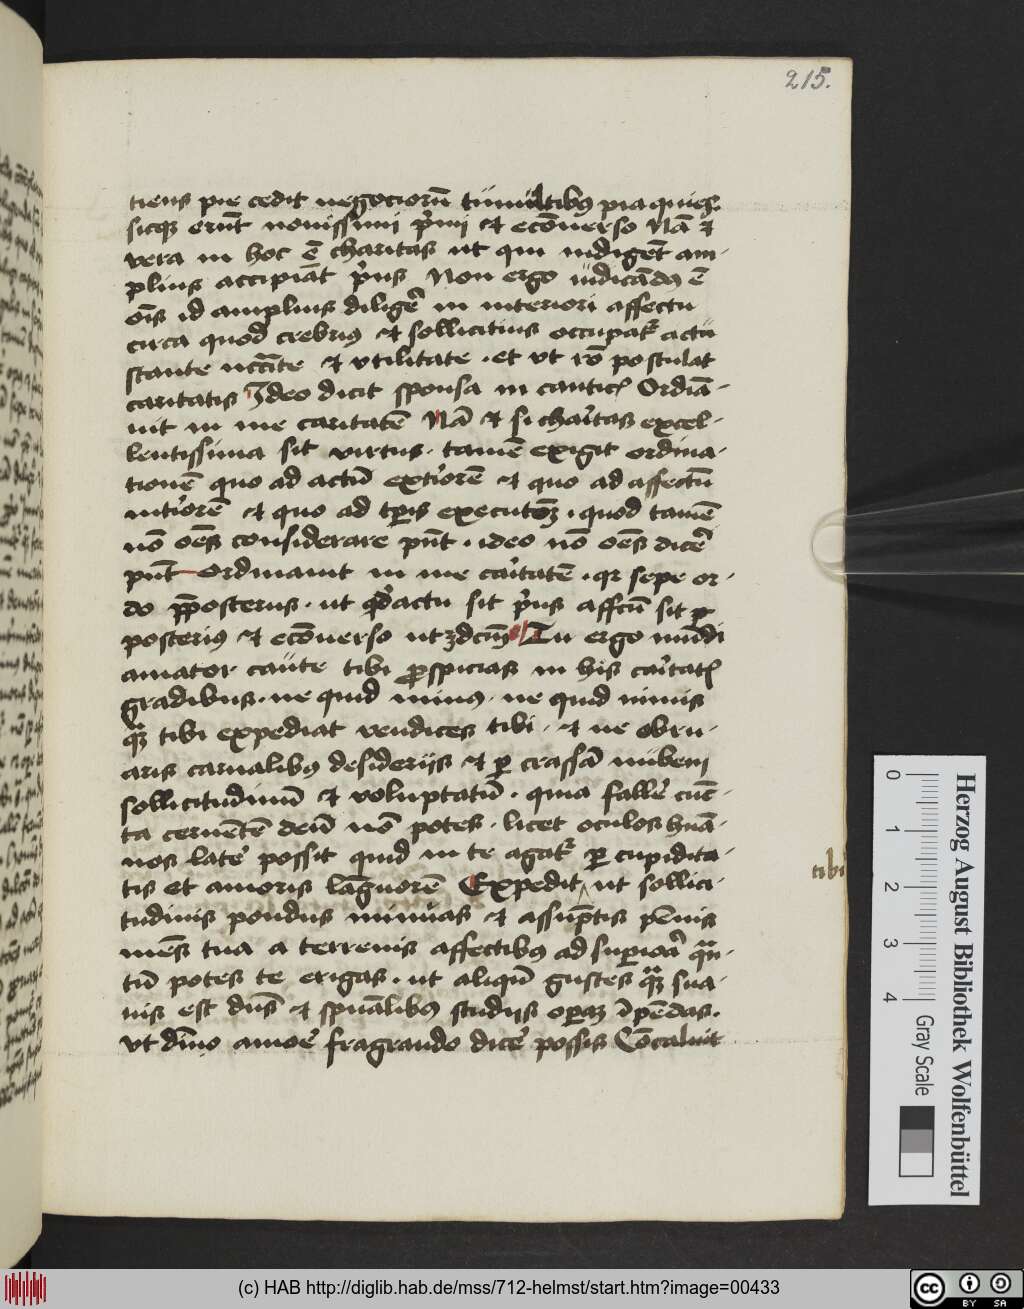 215.
tiens pie cedit negocioru᷒ tumultibꝰ pia quies.
sicqꝫ eru᷒t nouissimi p᷑mi ⁊ eco᷒uerso Na᷒ ⁊
vera in hoc e᷒ charitas ut qui indige᷒t am-
plius accipia᷒t p᷑us Non ergo iudica᷒dꝰ e᷒
o᷒is id amplius dilige᷑ in interiori affectu
circa quod crebriꝰ ⁊ sollicitius occupat᷑ actu
stante nccc᷒ite ⁊ vtilitate . et vt ro᷒ postulat
caritatis Ideo dicit sponsa in cantic᷑ Ordia᷒-
uit in me caritate᷒ Na᷒ ⁊ si char᷑itas excel-
lentissima sit virtus . tame᷒ exigit ordina-
tione᷒ quo ad actu᷒ extiore᷒ ⁊ quo ad affectu᷒
intiore᷒ ⁊ quo ad tp᷑is executoꝫ . quod tame᷒
no᷒ oe᷒s considerare pn᷒t . ideo no᷒ oe᷒s dice᷑
pn᷒t Ordinauit in me cai᷑tate᷒ . qr sepe or-
do p᷑posterus . ut qd᷑ actu sit p᷑us affcu᷒ sit ꝑ
posteriꝰ ⁊ eco᷒uerso ut ꝫ dcm᷒ Tu ergo mu᷒di
amator caute tibi ꝓspicias in his cai᷑tat᷑
gradibus . ne quid minꝰ . ne quid nimis
qꝫ tibi expediat vendices tibi . ⁊ ne obru-
aris carnalibꝰ desideriis ⁊ ꝑ crassa᷒ nubem
sollicitudinu᷒ ⁊ voluptatu᷒ . quia falle᷑ cu᷒c-
ta cerne᷒te᷒ deu᷒ no᷒ potes . licet oculos hua᷒-
nos late᷑ possit quid in te agat᷑ ꝑ cupidita-
tis et amoris la᷒guore᷒ Expedit ut sollici-
tibi
tudinis pondus minuas ⁊ assu᷒ptis pe᷒nis
me᷒s tua a terrenis affectibꝰ ad supioa᷑ qua᷒-
tu᷒ potes te erigas . ut aliqu᷒ gustes qꝫ sua-
uis est dn᷒s ⁊ spua᷒libꝰ studiis operaꝫ i᷒pe᷒das.
vt di᷒no amoe᷑ fragrando dice᷑ possis Co᷒caluit
Herzog August Bibliothek Wolfenbüttel
0 1 2 3 4
Gray Scale
(c) HAB http://diglib.hab.de/mss/712-helmst/start.htm?image=00433
cc BY SA